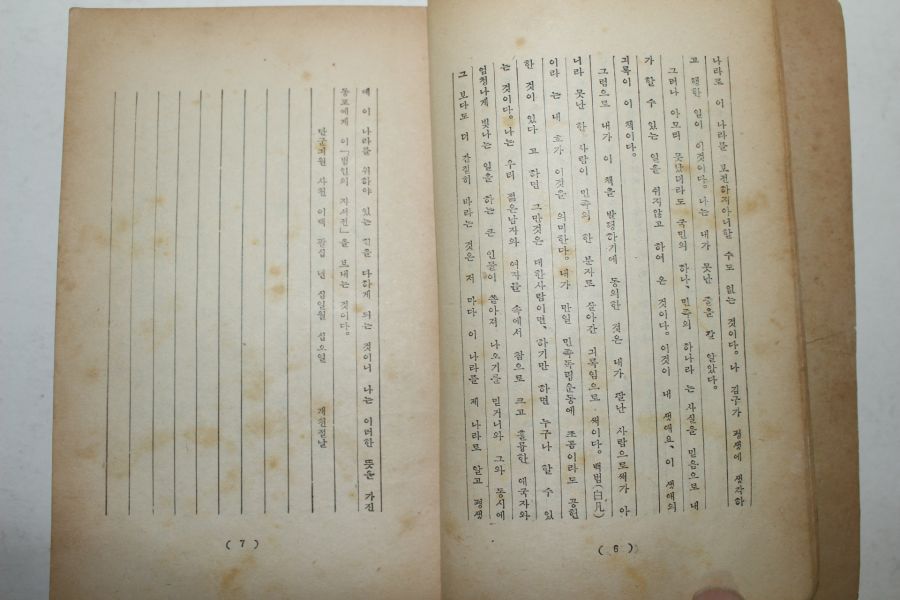 나라로 이 나라를 보전하지아니할 수도 없는 것이다. 나 김구가 평생에 생각하
고 행한 일이 이것이다. 나는 내가 못난 줄을 잘 알았다.
그러나 아모리 못났더라도 국민의 하나, 민족의 하나라 는 사실을 믿음으로 내
가 할 수 있는 일을 쉬지않고 하여 온 것이다. 이것이 내 생애요, 이 생애의
기록이 이 책이다.
그럼으로 내가 이 책을 발행하기에 동의한 것은 내가 잘난 사람으로써가 아
니라 못난 한 사람이 민족의 한 분자로 살아간 기록임으로 써이다. 백범(白凡)
이라 는 내 호가 이것을 의미한다. 내가 만일 민족독립운동에 조곰이라도 공헌
한 것이 있다 고 하면 그만것은 대한사람이면, 하기만 하면 누구나 할 수 있
는 것이다. 나는 우리 젊은남자와 여자들 속에서 참으로 크고 훌륭한 애국자와
엄청나게 빛나는 일을 하는 큰 인물이 쏟아져 나오기를 믿거니와 그와 동시에
그 보다도 더 간절히 바라는 것은 저 마다 이 나라를 제 나라로 알고 평생
(6)
에 이 나라를 위하야 있는 힘을 다하게 되는 것이니 나는 이러한 뜻을 가진
동포에게 이「범인의 자서전」을 보내는 것이다.
단군기원 사천 이백 팔십 년 십일월 십오일 개천절날
(7)